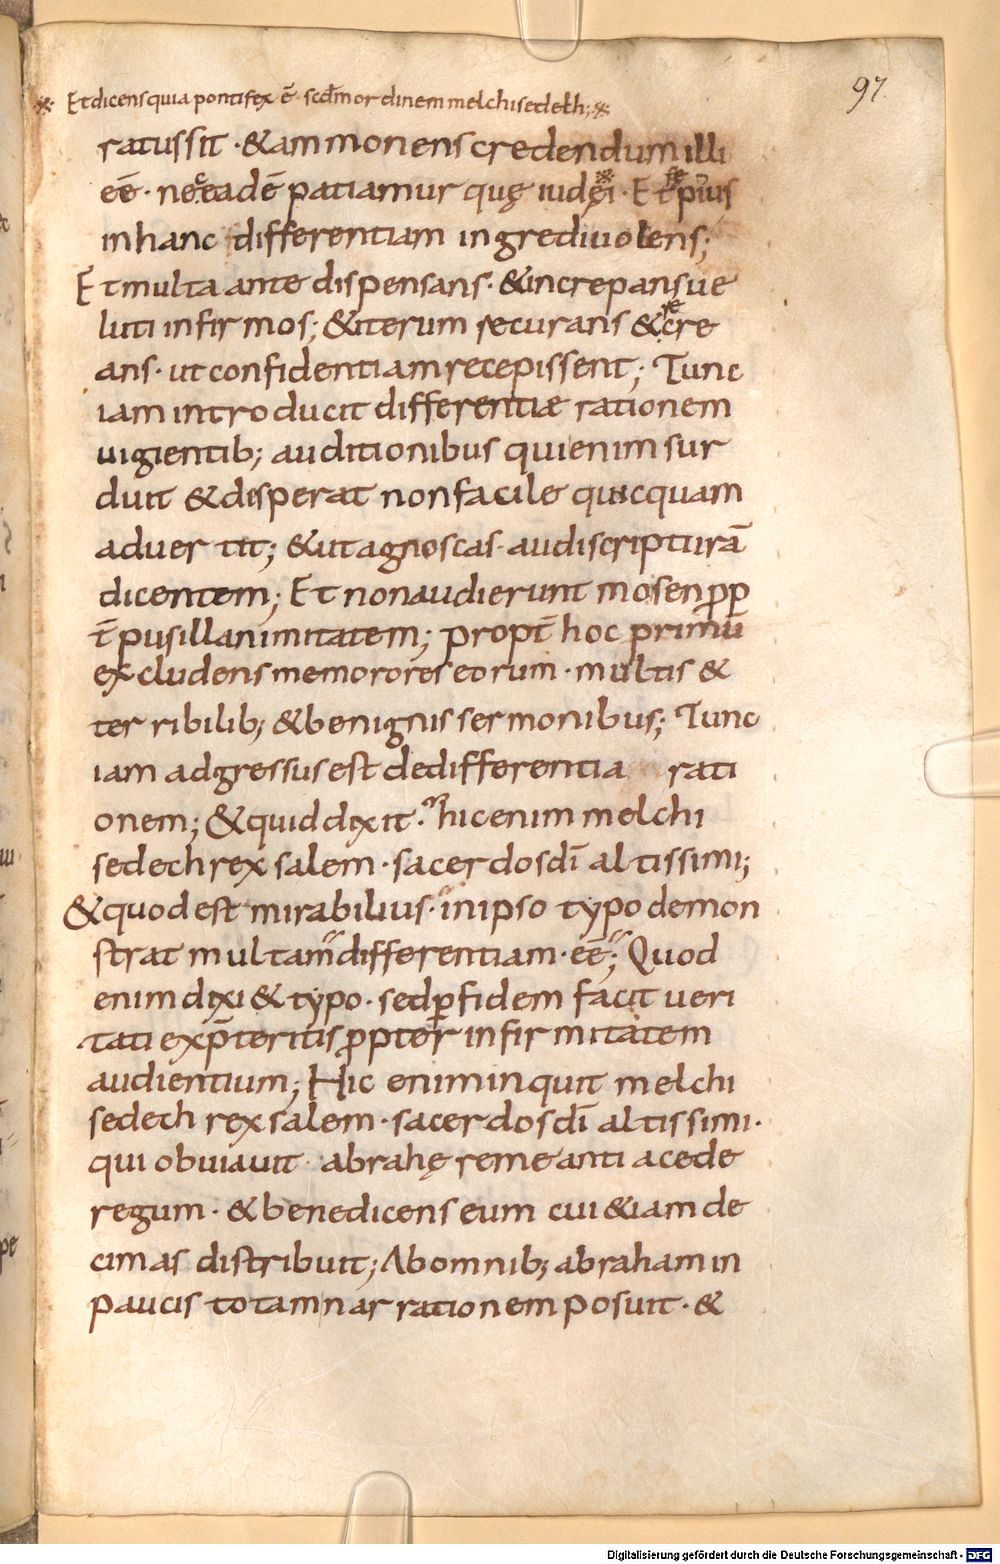 97
※ Et dicens quia pontifex ē scdm ordinem melchisedech; ※
ratus sit · & ammonens credendum illi
eē · nec eadē patiamur quę iudęi · Et se prius
in hanc differentiam ingredi uolens;
Et multa ante dispensans · & increpans ue
luti infirmos; & iterum securans & recre
ans · ut confidentiam recepissent; Tunc
iam introducit differentiæ rationem
uigientib; auditionibus qui enim sur
duit & desperat non facile quicquam
aduertit; & ut agnoscas · audi scripturā
dicentem; Et non audierunt mosen prop
t̄ pusillanimitatem; propt̄ hoc primū
excludens memorores eorum · multis &
terribilib; & benignis sermonibus; Tunc
iam adgressus est de differentia rati
onem; & quid dixit · hic enim melchi
sedech rex salem · sacerdos dī altissimi;
& quod est mirabilius · in ipso typo demon
strat multam differentiam · eē; Quod
enim dixi & typo · sed p fidem facit ueri
tati ex p̄teritis propter infirmitatem
audientium; Hic enim inquit melchi
sedech rex salem · sacerdos dī altissimi ·
qui obuiauit abrahę remeanti a cede
regum · & benedicens eum cui & iam de
cimas distribuit; Ab omnib; abraham in
paucis totam narrationem posuit · &
Digitalisierung gefördert durch die Deutsche Forschungsgemeinschaft - DFG